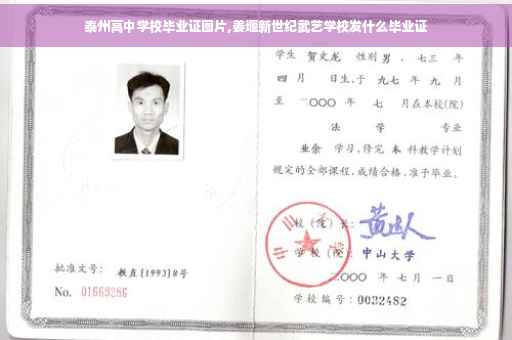 泰州高中学校毕业证图片,姜堰新世纪武艺学校发什么毕业证
学生 贺文龙 性别 男 、七三 年
四 月 日生,于 九七 年 九 月
至 二〇〇〇 年 七 月在本校(院)
法 学 专业
业余 学习,修完 本 科教学计划
规定的全部课程,成绩合格,准予毕业。
校(院)长:
学校(院): 中山大学
二〇〇〇 年 七 月 一 日
学校编号: 0032482
批准文号: 教直[1993]8号
No. 01669286